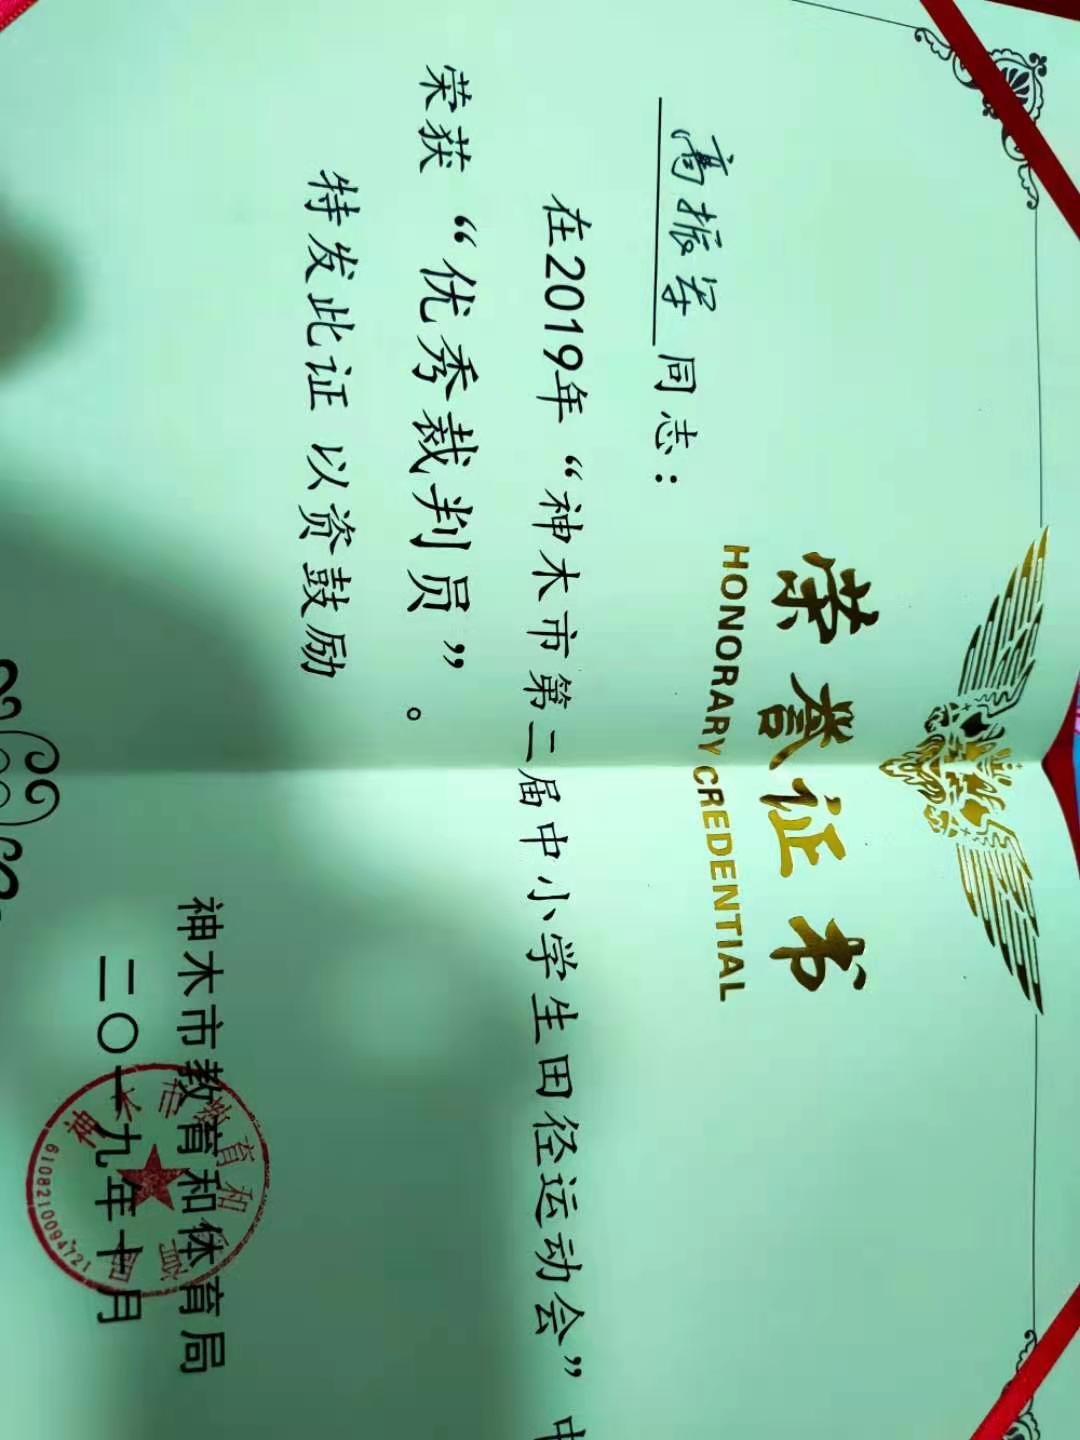 荣誉证书
HONORARY CREDENTIAL
高振军 同志：
在2019年“神木市第二届中小学生田径运动会”中
荣获“优秀裁判员”。
特发此证 以资鼓励
神木市教育和体育局
二〇一九年十月
神木市教育和体育局
6108210094721